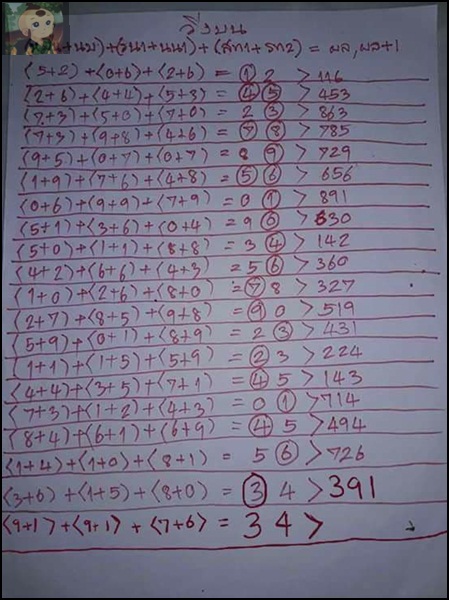 วิ่งบน
+นบ)+(รน1+นน1)+(สท1+รท2) = ผล,ผล+1
(5+2)+(0+6)+(2+6) = 1 2 > 116
(2+6)+(4+4)+(5+8) = 4 5 > 453
(7+3)+(5+0)+(7+0) = 2 3 > 863
(7+3)+(9+8)+(4+6) = 7 8 > 785
(9+5)+(0+7)+(0+7) = 8 9 > 729
(1+9)+(7+6)+(4+8) = 5 6 > 656
(0+6)+(9+9)+(7+9) = 0 1 > 891
(5+1)+(3+6)+(0+4) = 9 0 > 630
(5+0)+(1+1)+(8+8) = 3 4 > 142
(4+2)+(6+6)+(4+3) = 5 6 > 360
(1+0)+(2+6)+(8+0) = 7 8 > 327
(2+7)+(8+5)+(9+8) = 9 0 > 519
(5+9)+(0+1)+(8+9) = 2 3 > 431
(1+1)+(1+5)+(5+9) = 2 3 > 224
(4+4)+(3+5)+(7+1) = 4 5 > 143
(7+3)+(1+2)+(4+3) = 0 1 > 714
(8+4)+(6+1)+(6+9) = 4 5 > 494
(1+4)+(1+0)+(8+1) = 5 6 > 726
(3+6)+(1+5)+(8+0) = 3 4 > 391
(9+1)+(9+1)+(7+6) = 3 4 >